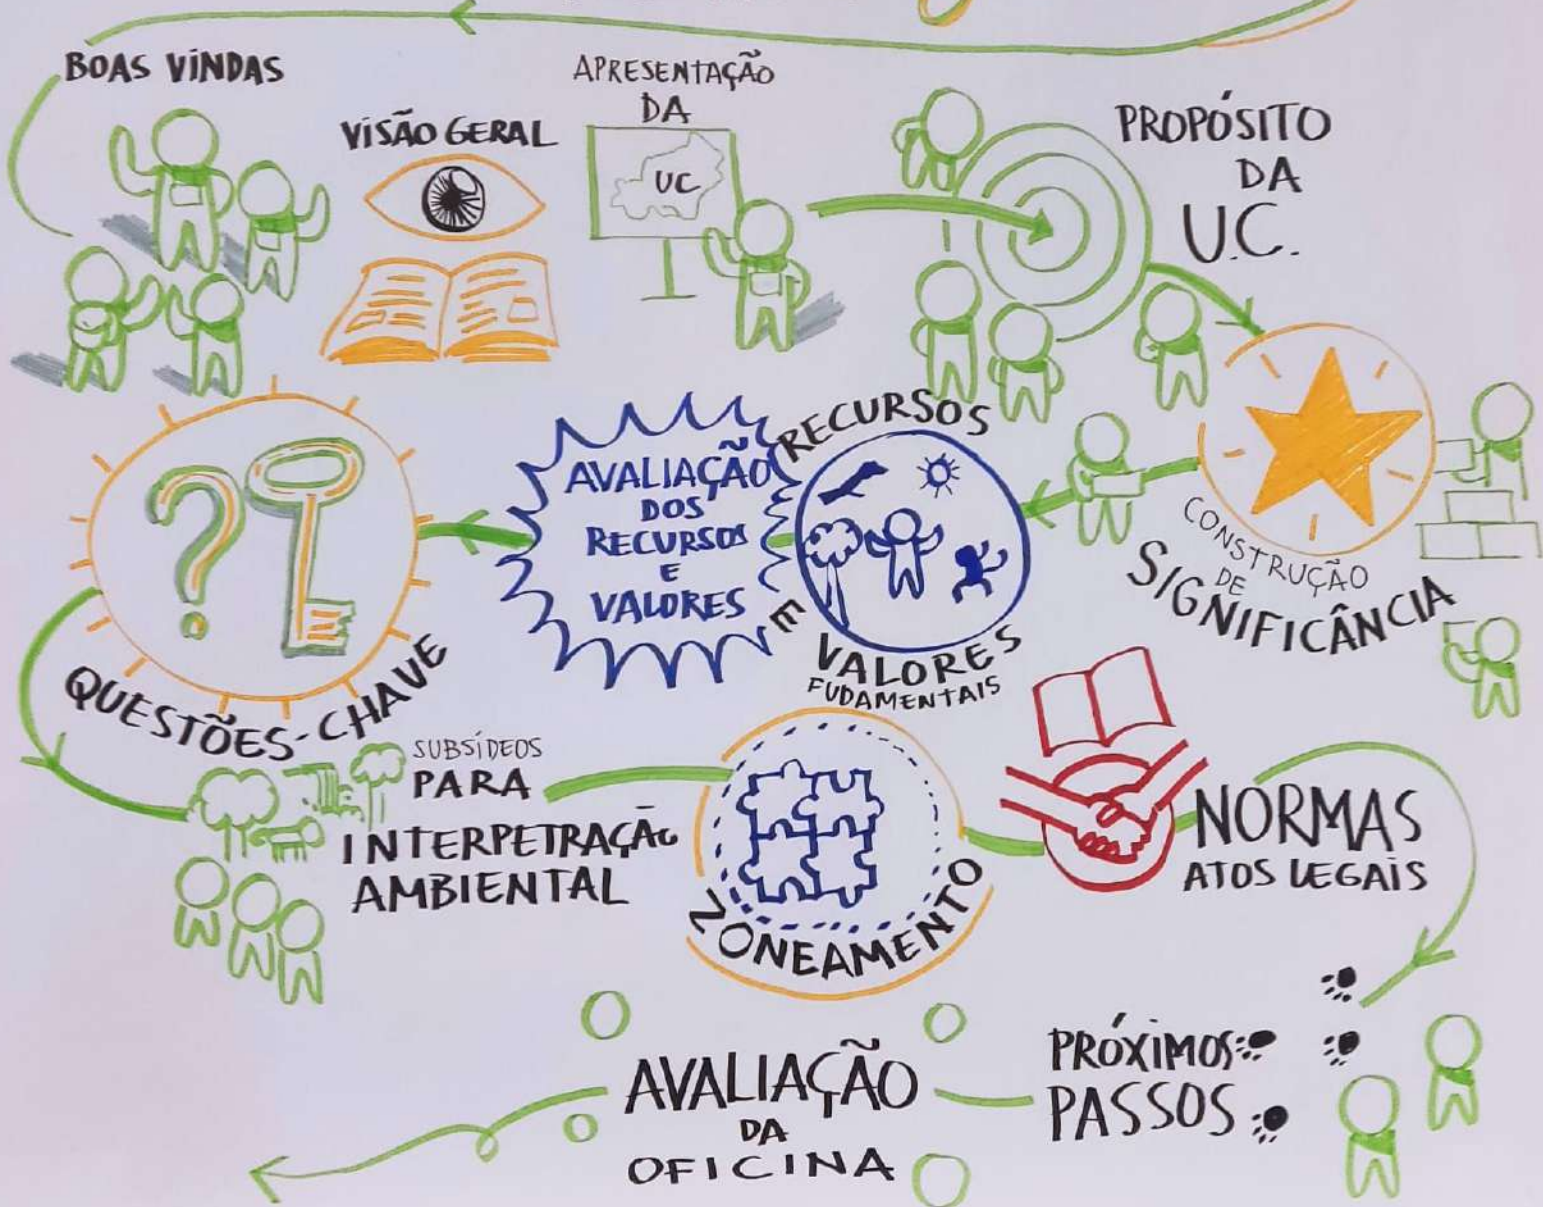 BOAS VINDAS
VISÃO GERAL
APRESENTAÇÃO
DA
UC
PROPÓSITO
DA
U.C.
CONSTRUÇÃO
DE
SIGNIFICÂNCIA
RECURSOS
E
VALORES
FUDAMENTAIS
AVALIAÇÃO
DOS
RECURSOS
E
VALORES
QUESTÕES-CHAVE
SUBSÍDEOS
PARA
INTERPETRAÇÃO
AMBIENTAL
ZONEAMENTO
NORMAS
ATOS LEGAIS
PRÓXIMOS
PASSOS
AVALIAÇÃO
DA
OFICINA